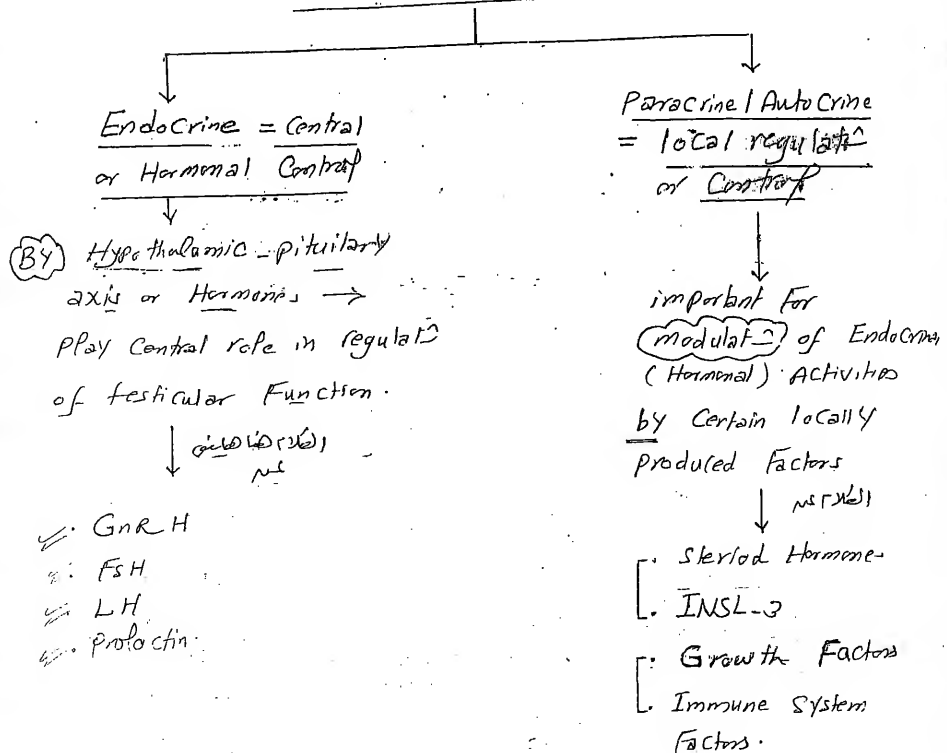 Endocrine = Central
or Hormonal Control
BY Hypothalamic - pituitary
axis or Hormones →
Play Central role in regulat
of testicular Function.
الكلام هنا هيبقى
عن
GnRH
FSH
LH
Prolactin.
Paracrine / Autocrine
= local regulat
or Control
important For
modulat of Endocrine
(Hormonal) Activities
by Certain locally
Produced Factors
الكلام عن
Steriod Hormone
INSL-3
Growth Factors
Immune System
Factors.